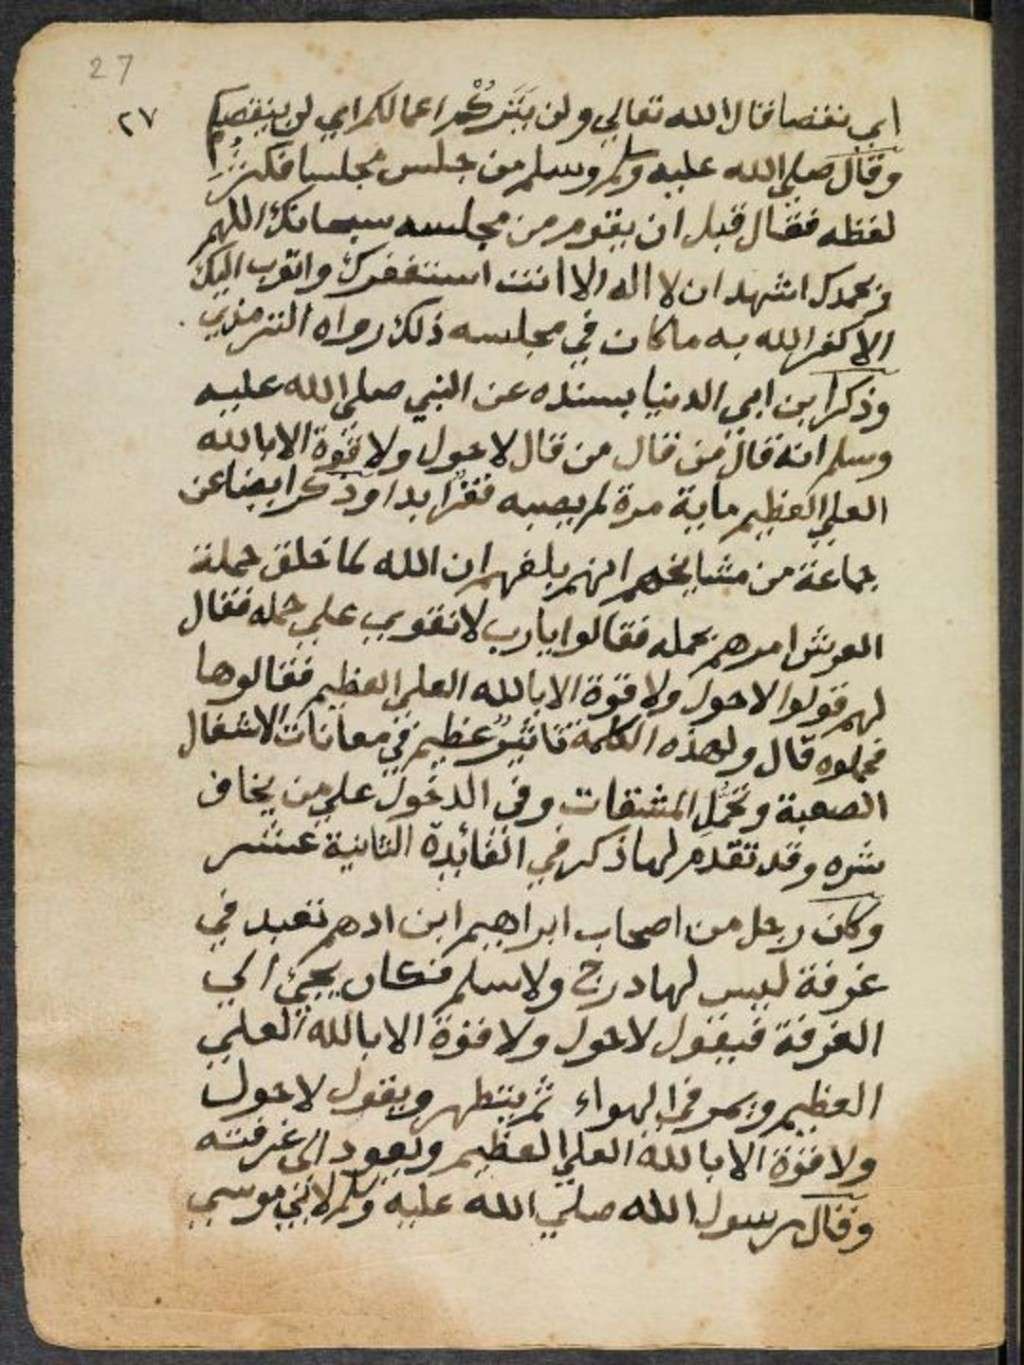 27
٢٧
اي نقصا قال الله تعالي ولن يَتِرَكُمْ اعمالكم اي لن ينقصكم
وقال صلي الله عليه وسلم وسلم من جلس مجلسا فكثُرَ
لغظه فقال قبل ان يقوم من مجلسه سبحانك اللهم
وبحمدك اشهد ان لا اله الا انت استغفرك واتوب اليك
الا كفر الله به ما كان في مجلسه ذلك رواه الترمذي
وذكر ابن ابي الدنيا بسنده عن النبي صلي الله عليه
وسلم انه قال من قال من قال لا حول ولا قوة الا بالله
العلي العظيم ماية مرة لم يصبه فقرٌ ابدا وذكر ايضا عن
جماعة من مشايخهم انهم بلغهم ان الله لما خلق حملة
العرش امرهم بحمله فقالوا يا رب لا نقوي علي حمله فقال
لهم قولوا لا حول ولا قوة الا بالله العلي العظيم فقالوها
فحملوه قال ولهذه الكلمة تاثيرٌ عظيم في معانات الاشغال
الصعبة وتحمُّلِ المشقات وفي الدخول علي من يخاف
شره وقد تقدم لها ذكر في الفائدة الثانية عشر
وكان رجل من اصحاب ابراهيم ابن ادهم تعبد في
غرفة ليس لها درج ولا سلم فكان يجئ الي
الغرفة فيقول لا حول ولا قوة الا بالله العلي
العظيم ويمر في الهواء ثم يتطهر ويقول لا حول
ولا قوة الا بالله العلي العظيم ويعود الي غرفته
وقال رسول الله صلي الله عليه وسلم لابي موسي